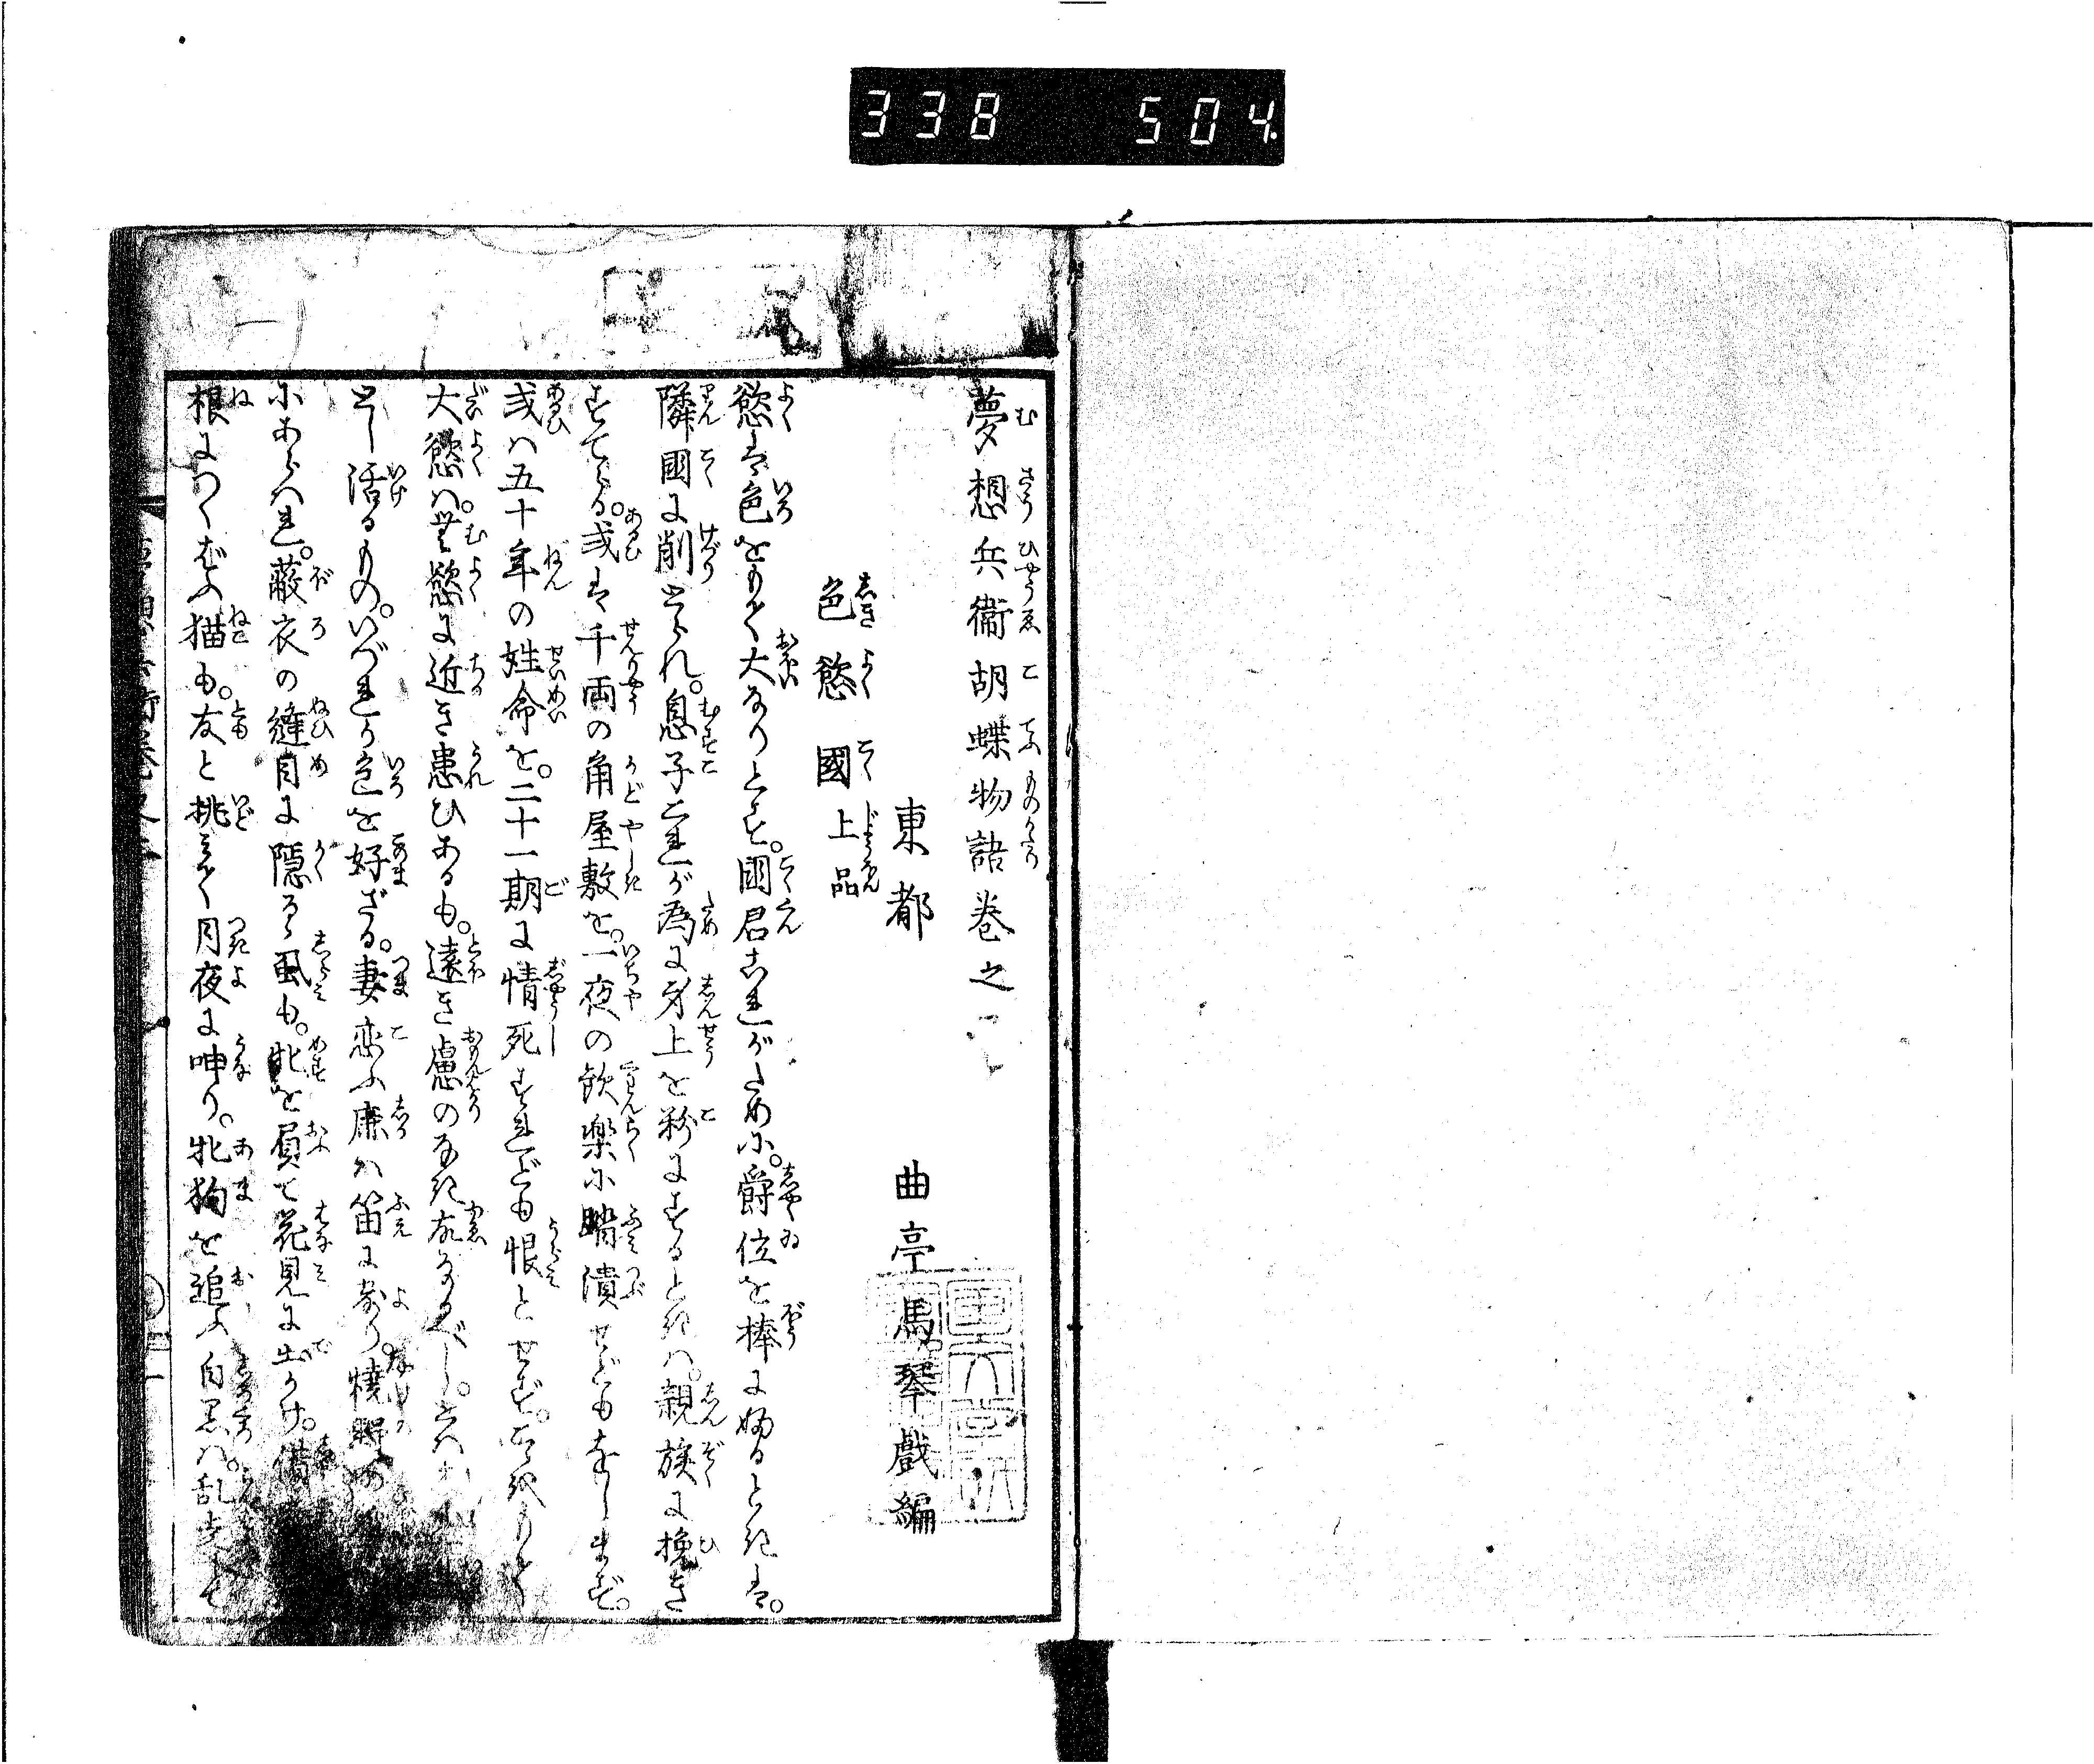 338 504
夢想兵衞胡蝶物語巻之
東都 曲亭馬琴戲編
色慾國上品
慾は色をもて大なりとす。國君これがために。爵位を棒に婦るときは。
隣國に削とられ。息子これが為に身上を粉にするときハ。親族に挽き
すてらる。或は千両の角屋敷を。一夜の飲楽に踏潰せどもをしまず。
或ハ五十年の姓命を。二十一期に情死すれども恨とせず。こゝをもて
大慾ハ。無慾に近き患ひあるも。遠き慮のなき故なるべし。
とし活るもの。いづれか色を好ざる。妻恋ふ鹿ハ笛に寄り。
にあらハれ。蔽衣の縫目に隠るゝ虱も。牝を負て花見に出かけ。
根につくばふ猫も。友と挑えて月夜に呻り。牝狗を追ふ白黒ハ。乱